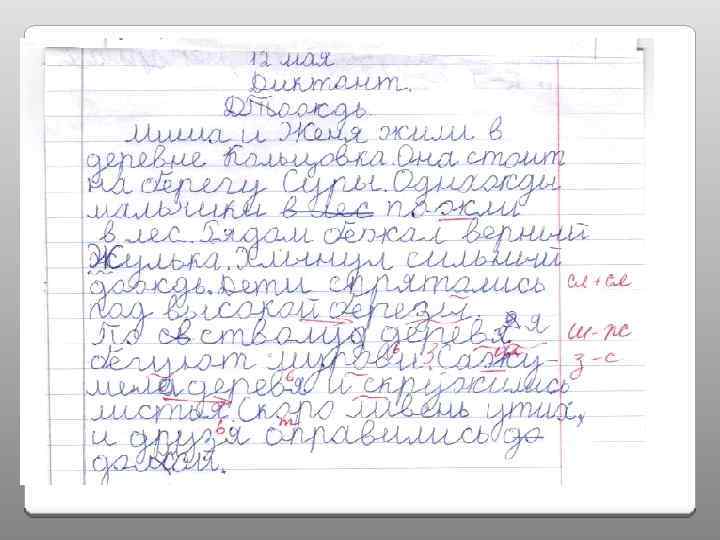 12 мая
Диктант.
Дождь
Миша и Женя жили в
деревне Кольцовка. Она стоит
на берегу Суры. Однажды
мальчики в лес пожли
в лес. Рядом бежал верний
Жулька. Хлынул сильний
дождь. Дети спрятались
под высокой березй.
По стволу деревя я
бегуют мурови. За
мела деревя и скружились
листья. Скоро ливень утих,
и друзя оправились до
домой.
сл+сл
ш-ж
з-с